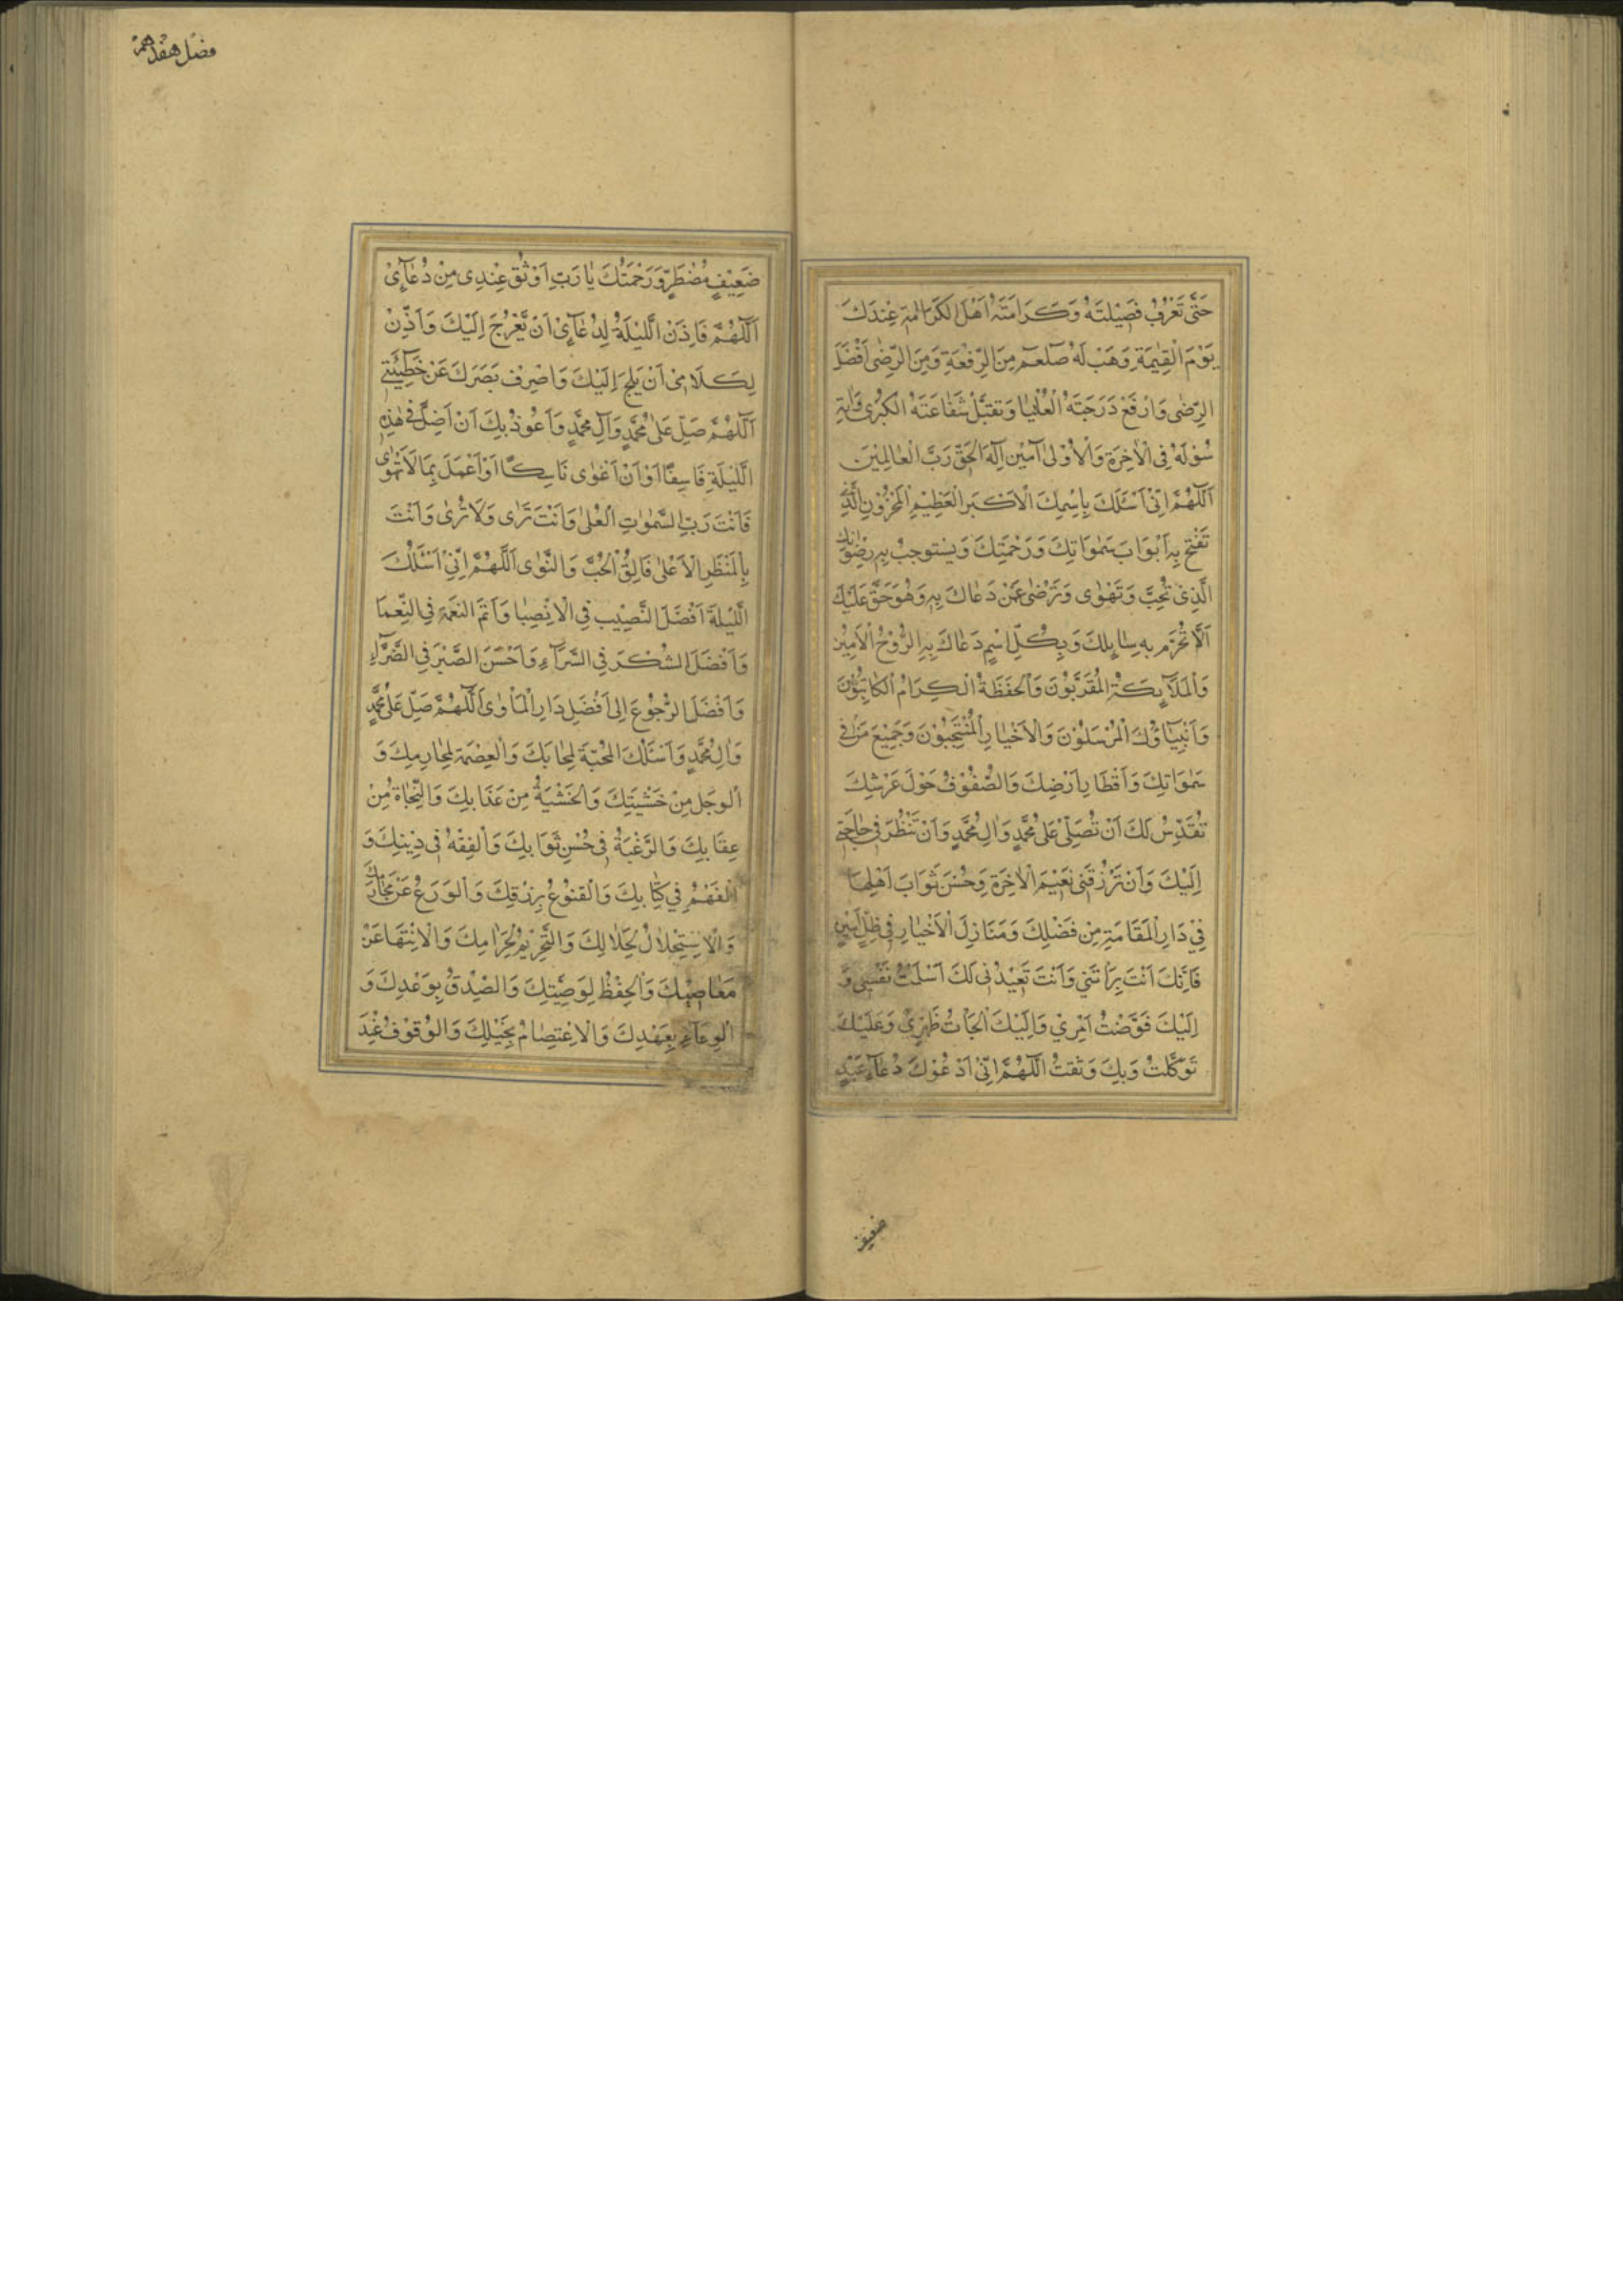 حَتَّى تَعْرِفُ فَضِيْلَتَهُ وَكَرَامَتَهُ اَهْلَ الكَرَامَةِ عِنْدَكَ
يَوْمَ الْقِيٰمَةِ وَهَبْ لَهُ صلعم مِنَ الرِّفْعَةِ وَمِنَ الرِّضٰى اَفْضَلَ
الرِّضٰى وَارْفَعْ دَرَجَتَهُ الْعُلْيَا وَتَقَبَّلْ شَفَاعَتَهُ الْكُبْرٰى وَاٰتِهِ
سُؤْلَهُ فِى الْاٰخِرَةِ وَالْاُوْلٰى آمِيْن اِلٰهَ الْحَقِّ رَبَّ الْعٰالَمِيْنَ
اَللّٰهُمَّ اِنِّىْ اَسْئَلُكَ بِاِسْمِكَ الْاَكْبَرِ الْعَظِيْمِ الْمَخْزُوْنِ الَّذِىْ
تَفْتَحُ بِهِ اَبْوَابَ سَمٰوَاتِكَ وَرَحْمَتِكَ وَيَسْتَوجِبُ بِهِ رِضْوَانَكَ
الَّذِىْ تُحِبُّ وَتَهْوٰى وَتَرْضٰى عَنْ دَعَاكَ بِهِ وَهُوَ حَقٌّ عَلَيْكَ
اَلَّا تُحْرَمَ بِهِ سٰائِلِكَ وَبِكُلِّ اسْمٍ دَعَاكَ بِهِ الرُّوْحُ الْاَمِيْنِ
وَالْمَلَآئِكَةُ الْمُقَرَّبُوْنَ وَالْحَفَظَةُ الْكِرَامُ الْكَاتِبُوْنَ
وَاَنْبِيَاؤُكَ الْمُرْسَلُوْنَ وَالْاَخْيَارِ الْمُنْتَجَبُوْنَ وَجَمِيْعَ مَنْ فِى
سَمٰوَاتِكَ وَاَقْطَارِ اَرْضِكَ وَالصُّفُوْفُ حَوْلَ عَرْشِكَ
تُقَدِّسُ لَكَ اَنْ تُصَلِّىَ عَلٰى مُحَمَّدٍ وَاٰلِ مُحَمَّدٍ وَاَنْ تَنْظُرَ فِى حَاجَتِى
اِلَيْكَ وَاَنْ تَرْزُقَنِى نَعِيْمَ الْاٰخِرَةِ وَحُسْنَ ثَوَابَ اَهْلِهَا
فِىْ دَارِ الْمَقَامَةِ مِنْ فَضْلِكَ وَمَنَازِلَ الْاَخْيَارِ فِى ظِلٍّ
فَاِنَّكَ اَنْتَ بَرَاْتَنِي وَاَنْتَ تُعِيْدُنِى لَكَ اَسْلَمْتُ نَفْسِى وَ
اِلَيْكَ فَوَّضْتُ اَمْرِيْ وَاِلَيْكَ اَلْجَاْتُ ظَهْرِىْ وَعَلَيْكَ
تَوَكَّلْتُ وَبِكَ وَثَقْتُ اَللّٰهُمَّ اِنِّىْ اَدْعُوْكَ دُعَآءَ عَبْدٍ
ضعيف
فضل هفدهم
ضَعِيْفٍ مُضْطَرٍّ وَرَحْمَتُكَ يٰا رَبِّ اَوْثَقُ عِنْدِى مِنْ دُعَآئِىْ
اَللّٰهُمَّ فَاذَنْ الَّليْلَةَ لِدُعَآئِىْ اَنْ يَّعْرُجَ اِلَيْكَ وَاَذِّنْ
لِكَلَامِى اَنْ يَلِجَ اِلَيْكَ وَاصْرِفْ بَصَرَكَ عَنْ خَطِيْئَتِى
اَللّٰهُمَّ صَلِّ عَلٰى مُحَمَّدٍ وَآلِ مُحَمَّدٍ وَاَعُوْذُ بِكَ اَنْ اَضِلَّ فِى هٰذِهِ
الَّليْلَةِ فَاسِقًا اَوْ اَنْ اَغْوٰى نَاسِكًا اَوْ اَعْمَلَ بِمَا لَا تَهْوٰى
فَاَنْتَ رَبِّ السَّمٰوٰاتِ الْعُلٰى وَاَنْتَ تَرٰى وَلَا تُرٰى وَاَنْتَ
بِالْمَنْظَرِ الْاَعْلٰى فَالِقُ الْحُبِّ وَالنَّوٰى اَللّٰهُمَّ اِنِّىْ اَسْئَلُكَ
الَّليْلَةَ اَفْضَلَ النَّصِيْبِ فِى الْاِنْصِبَا وَاَتَمَّ النِّعْمَةِ فِي النِّعمَا
وَاَفْضَلَ الشُكْرَ فِى السَّرَّآءِ وَاَحْسَنَ الصَّبْرَ فِى الضَّرَّآءِ
وَاَفْضَلَ الرُّجُوْعَ اِلٰى اَفْضَلِ دَارِ الْمَاْوٰى اَللّٰهُمَّ صَلِّ عَلٰى مُحَمَّدٍ
وَاٰلِ مُحَمَّدٍ وَاَسْئَلُكَ الْمَحَبَّةَ لِمَحَابِكَ وَالْعِصْمَةِ لِمَحٰارِمِكَ وَ
الْوَجَلِ مِنْ خَشْيَتِكَ وَالْخَشْيَةُ مِنْ عَذَابِكَ وَالنَّجٰاةُ مِنْ
عِقَابِكَ وَالرَّغْبَةُ فِى حُسْنِ ثَوَابِكَ وَالْفِقْهُ فِى دِيْنِكَ وَ
الْفَهْمُ فِي كِتَابِكَ وَالْقنُوْعُ بِرِزْقِكَ وَالْوَرَعُ عَنْ مَحَارِمِكَ
وَالْاِسْتِحْلَالُ لِحَلَالِكَ وَالتَّحْرِيْمُ لِحَرَامِكَ وَالْاِنْتَهَا عَنْ
مَعَاصِيْكَ وَالْحِفْظُ لِوَصِيَّتِكَ وَالصِّدْقُ بِوَعْدِكَ وَ
الْوِفَآءُ بِعَهْدِكَ وَالْاِعْتِصَامُ بِحَبْلِكَ وَالْوُقُوْفُ عِنْدَ